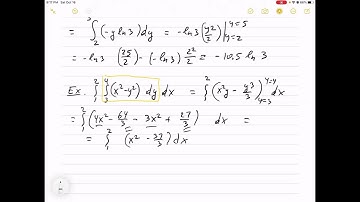 9:11 PM Sat Oct 10
= ∫₂⁵ (-y ln 3) dy = -ln 3 (y²/2) |_{y=2}^{y=5}
= -ln 3 (25/2) - (-ln 3) 2²/2 = -10.5 ln 3
Ex. ∫₁² ∫₃⁴ (x²-y²) dy dx = ∫₁² (x²y - y³/3)_{y=3}^{y=4} dx
= ∫₁² (4x² - 64/3 - 3x² + 27/3) dx =
= ∫₁² (x² - 37/3) dx